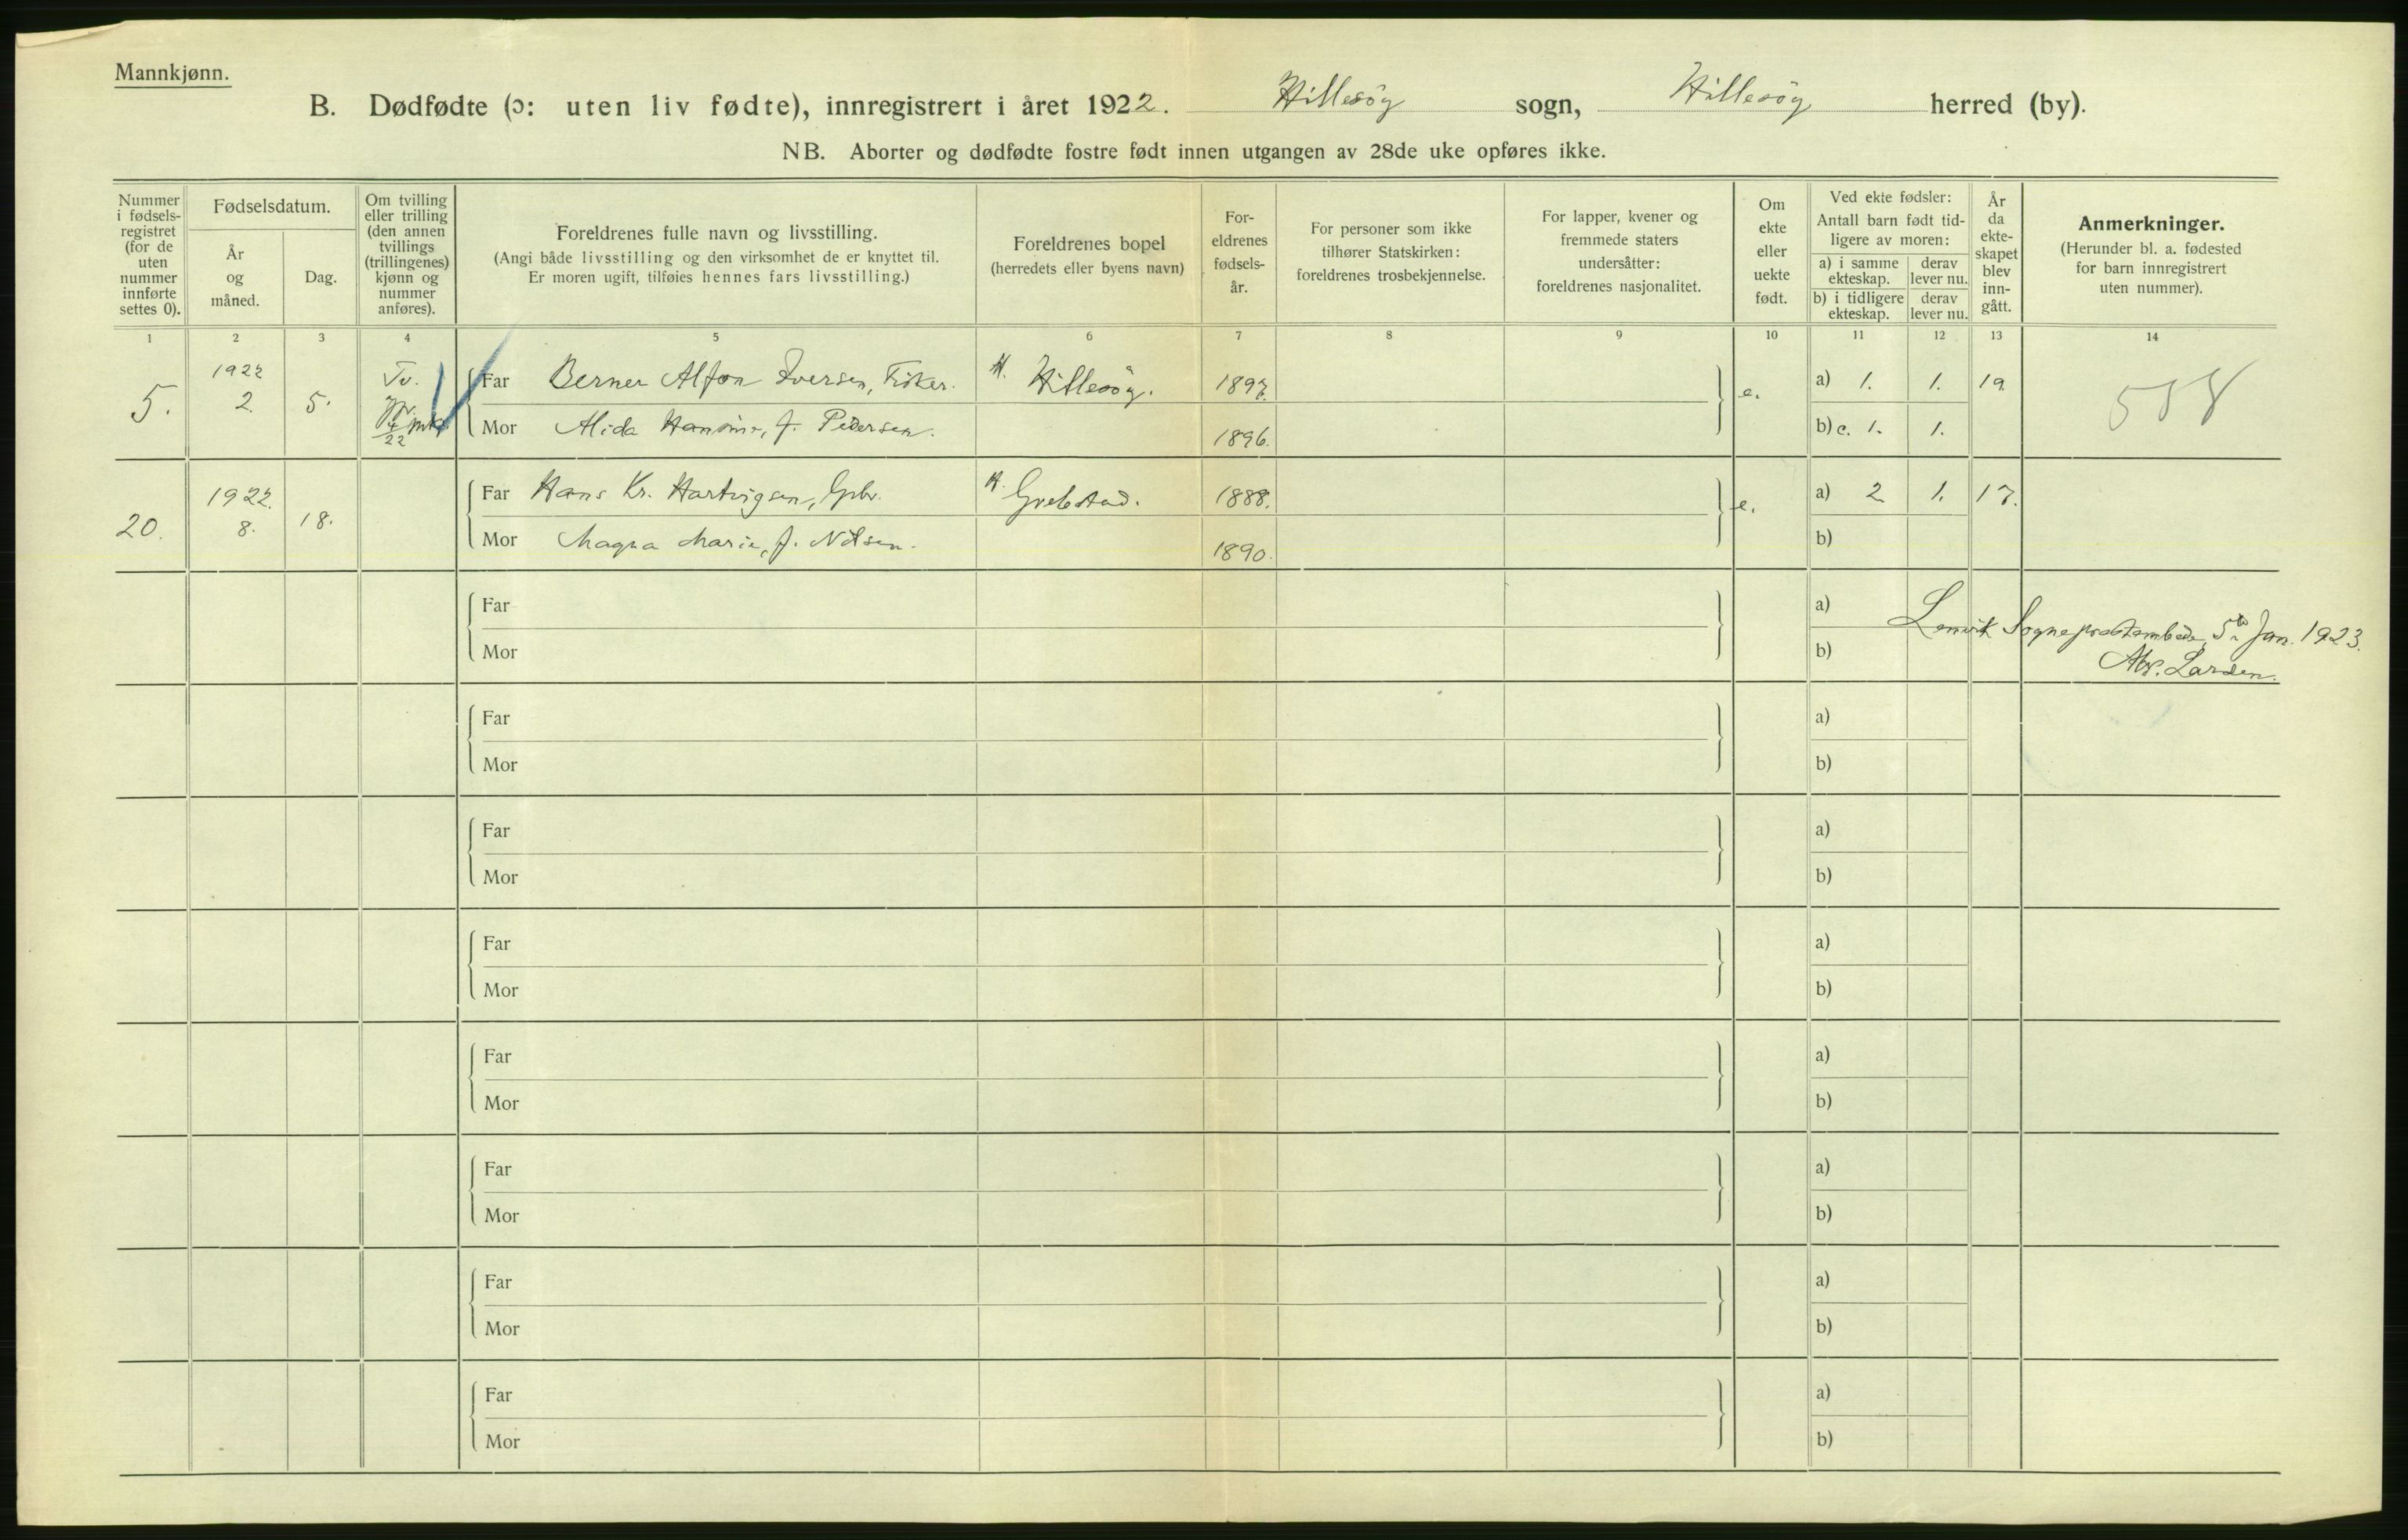 Mannkjønn.
B. Dødfødte (ɔ: uten liv fødte), innregistrert i året 1922. Hillesöy sogn, Hillesöy herred (by).
NB. Aborter og dødfødte fostre født innen utgangen av 28de uke opføres ikke.
Nummer i fødsels-registret (for de uten nummer innførte settes 0).
Fødselsdatum.
År og måned.
Dag.
Om tvilling eller trilling (den annen tvillings (trillingenes) kjønn og nummer anføres).
Foreldrenes fulle navn og livsstilling.
(Angi både livsstilling og den virksomhet de er knyttet til.
Er moren ugift, tilføies hennes fars livsstilling.)
Foreldrenes bopel
(herredets eller byens navn)
For-eldrenes fødsels-år.
For personer som ikke tilhører Statskirken: foreldrenes trosbekjennelse.
For lapper, kvener og fremmede staters undersåtter: foreldrenes nasjonalitet.
Om ekte eller uekte født.
Ved ekte fødsler:
Antall barn født tid-ligere av moren:
a) i samme ekteskap.
derav lever nu.
b) i tidligere ekteskap.
derav lever nu.
År da ekte-skapet blev inn-gått.
Anmerkninger.
(Herunder bl. a. fødested for barn innregistrert uten nummer).
1 2 3 4 5 6 7 8 9 10 11 12 13 14
5. 1922 2. 5. Tv.
Far Berner Alfon Iversen, Fisker. H. Hillesöy. 1897. e. a) 1. 1. 19.
Mor Alida Hansine, f. Pedersen. 1896. b) c. 1. 1.
20. 1922. 8. 18.
Far Hans Kr. Hartvigsen, Gbr. H. Grebstad. 1888. e. a) 2 1. 17.
Mor Magna Marie, f. Nilsen. 1890. b)
Far a)
Lenvik Sogneprestembede, 5te Jan. 1923.
Mor b)
Larsen.
Far a)
Mor b)
Far a)
Mor b)
Far a)
Mor b)
Far a)
Mor b)
Far a)
Mor b)
Far a)
Mor b)
Far a)
Mor b)